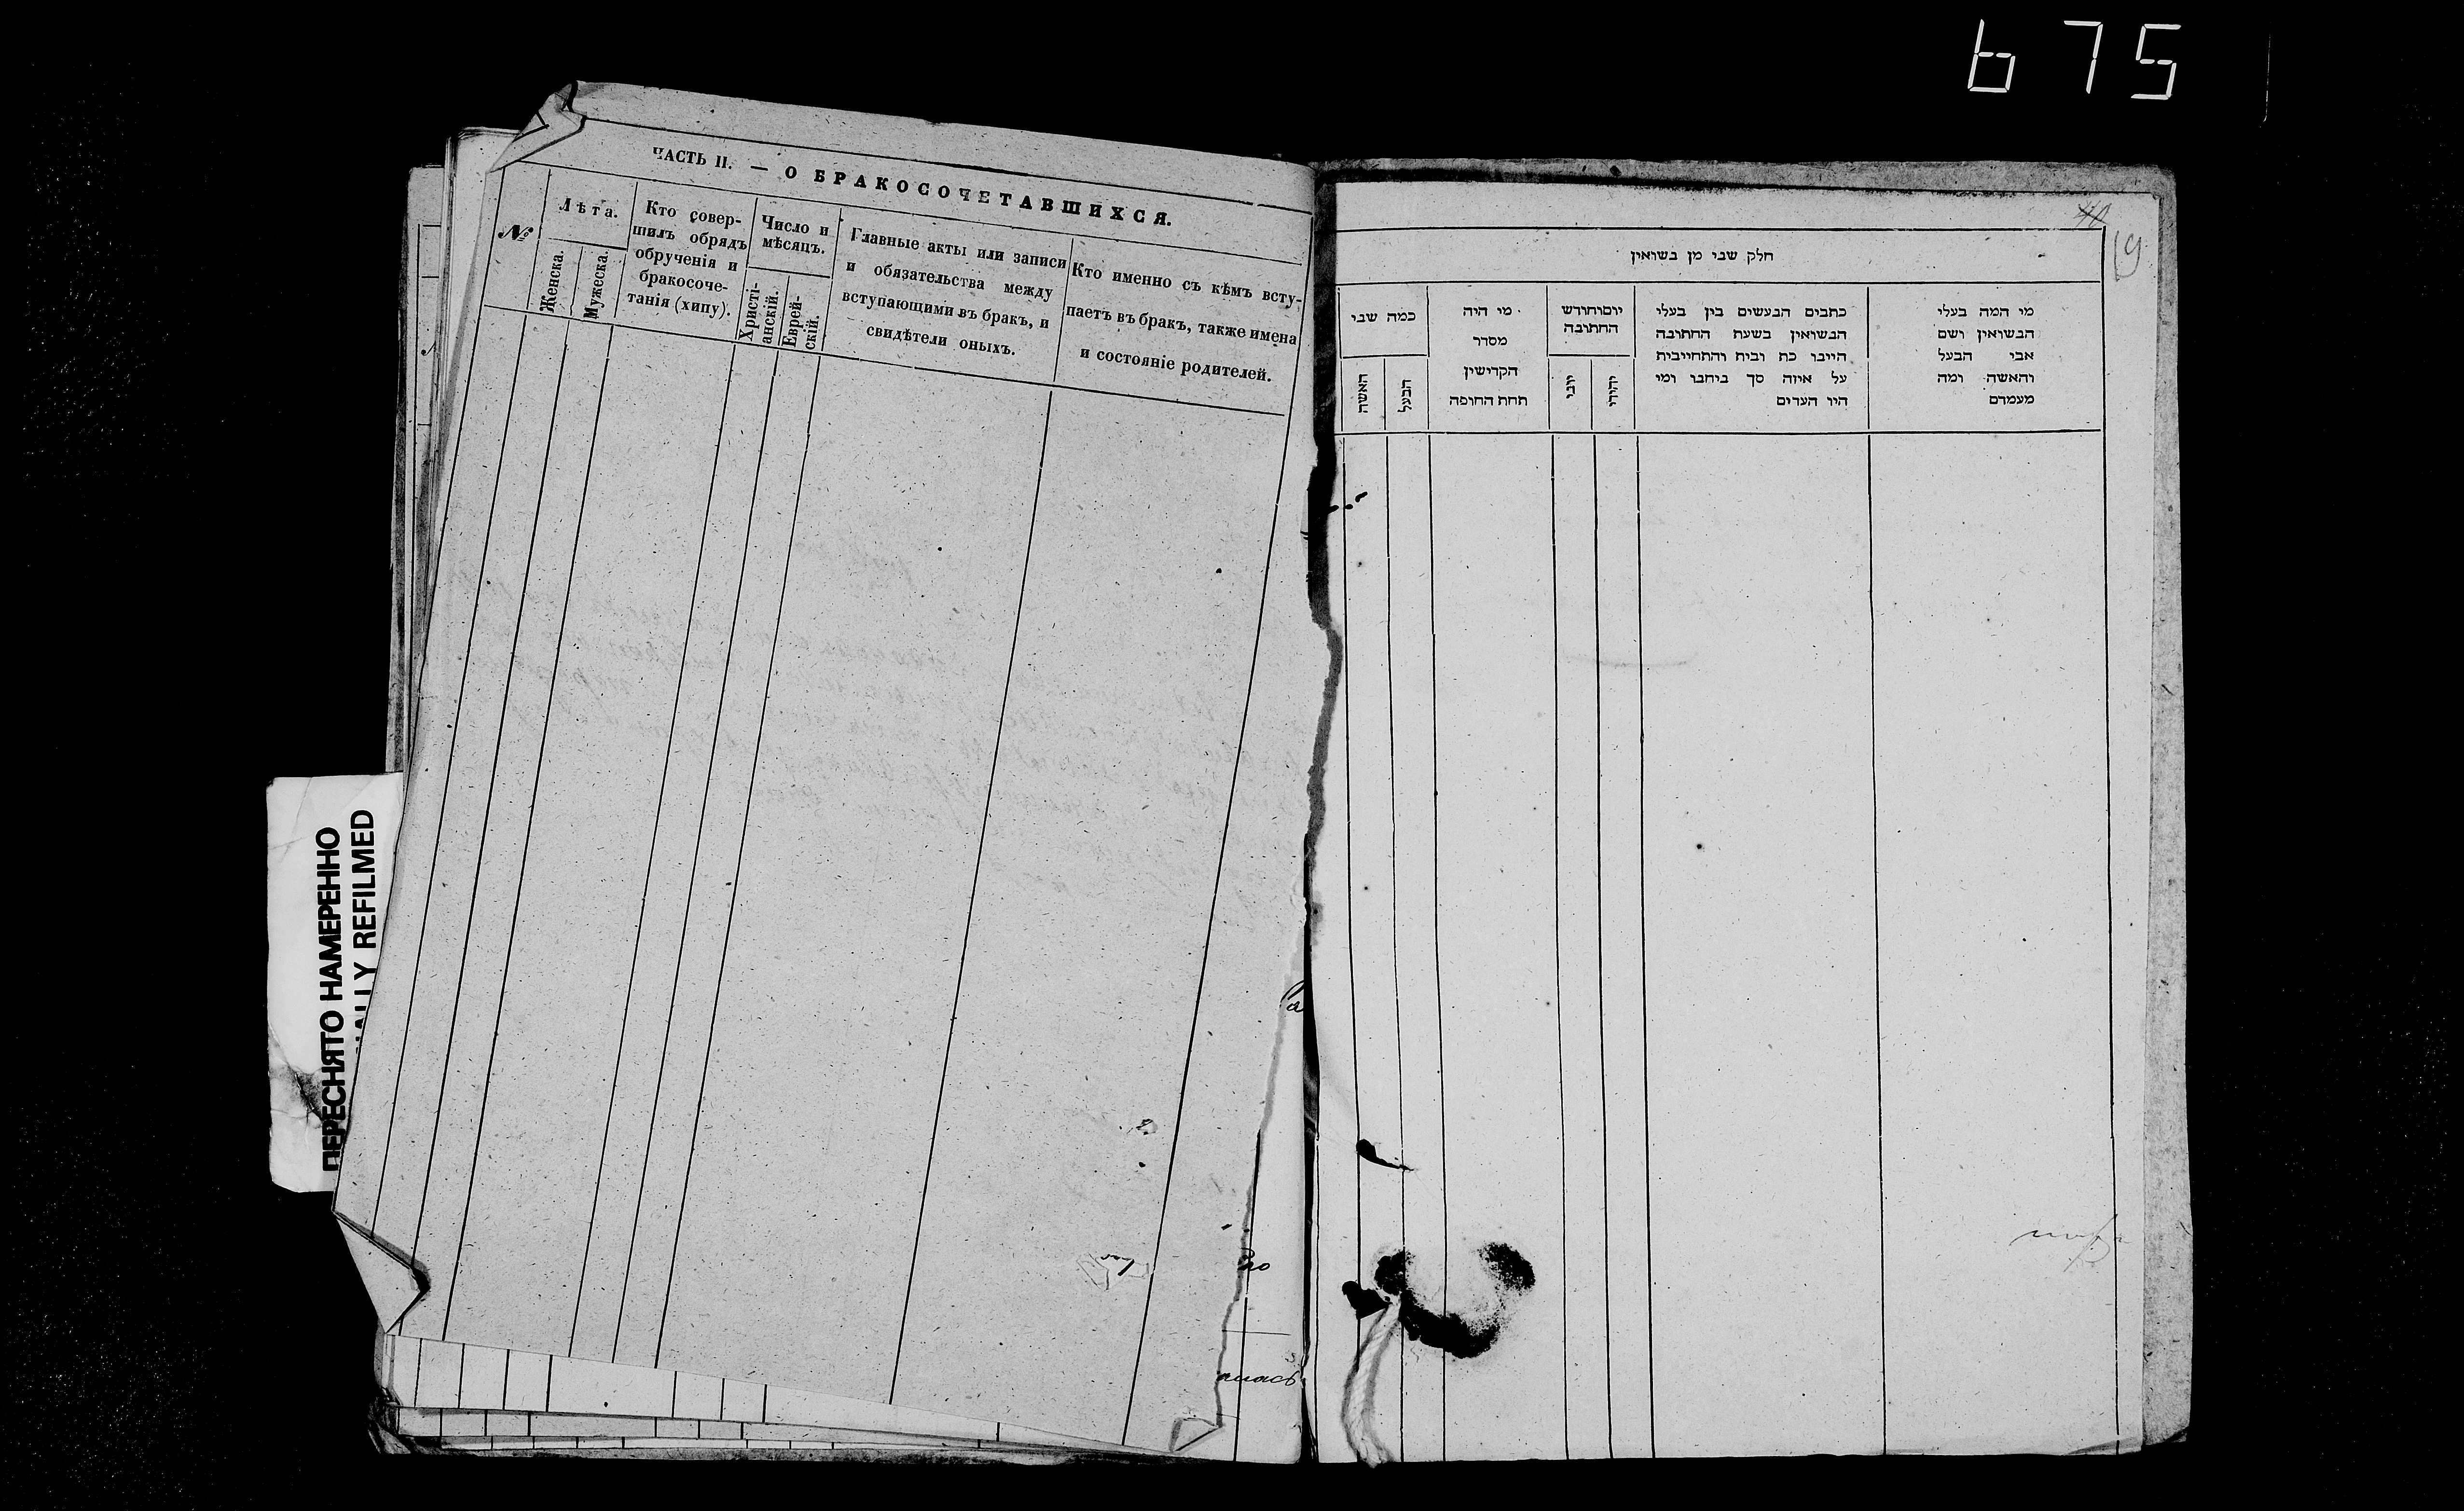 675
ЧАСТЬ II. — О БРАКОСОЧЕТАВШИХСЯ.
№
Лѣта.
Женска.
Мужеска.
Кто совер-
шилъ обрядъ
обрученія и
бракосоче-
танія (хипу).
Число и
мѣсяцъ.
Христі-
анскій.
Еврей-
скій.
Главные акты или записи
и обязательства между
вступающими въ бракъ, и
свидѣтели оныхъ.
Кто именно съ кѣмъ всту-
паетъ въ бракъ, также имена
и состояніе родителей.
ПЕРЕСНЯТО НАМЕРЕННО
ALLY REFILMED
חלק שני מן נשואין
מי המה בעלי
הנשואין ושם
אבי הבעל
והאשה ומה
מעמדם
כתבים הנעשים בין בעלי
הנשואין בשעת החתונה
היינו כת וביח והתחייבית
על איזה סך ניתנו ומי
היו העדים
יום וחודש
החתונה
יהודי
יוני
מי היה
מסדר
הקדישין
תחת החופה
כמה שני
הבעל
האשה